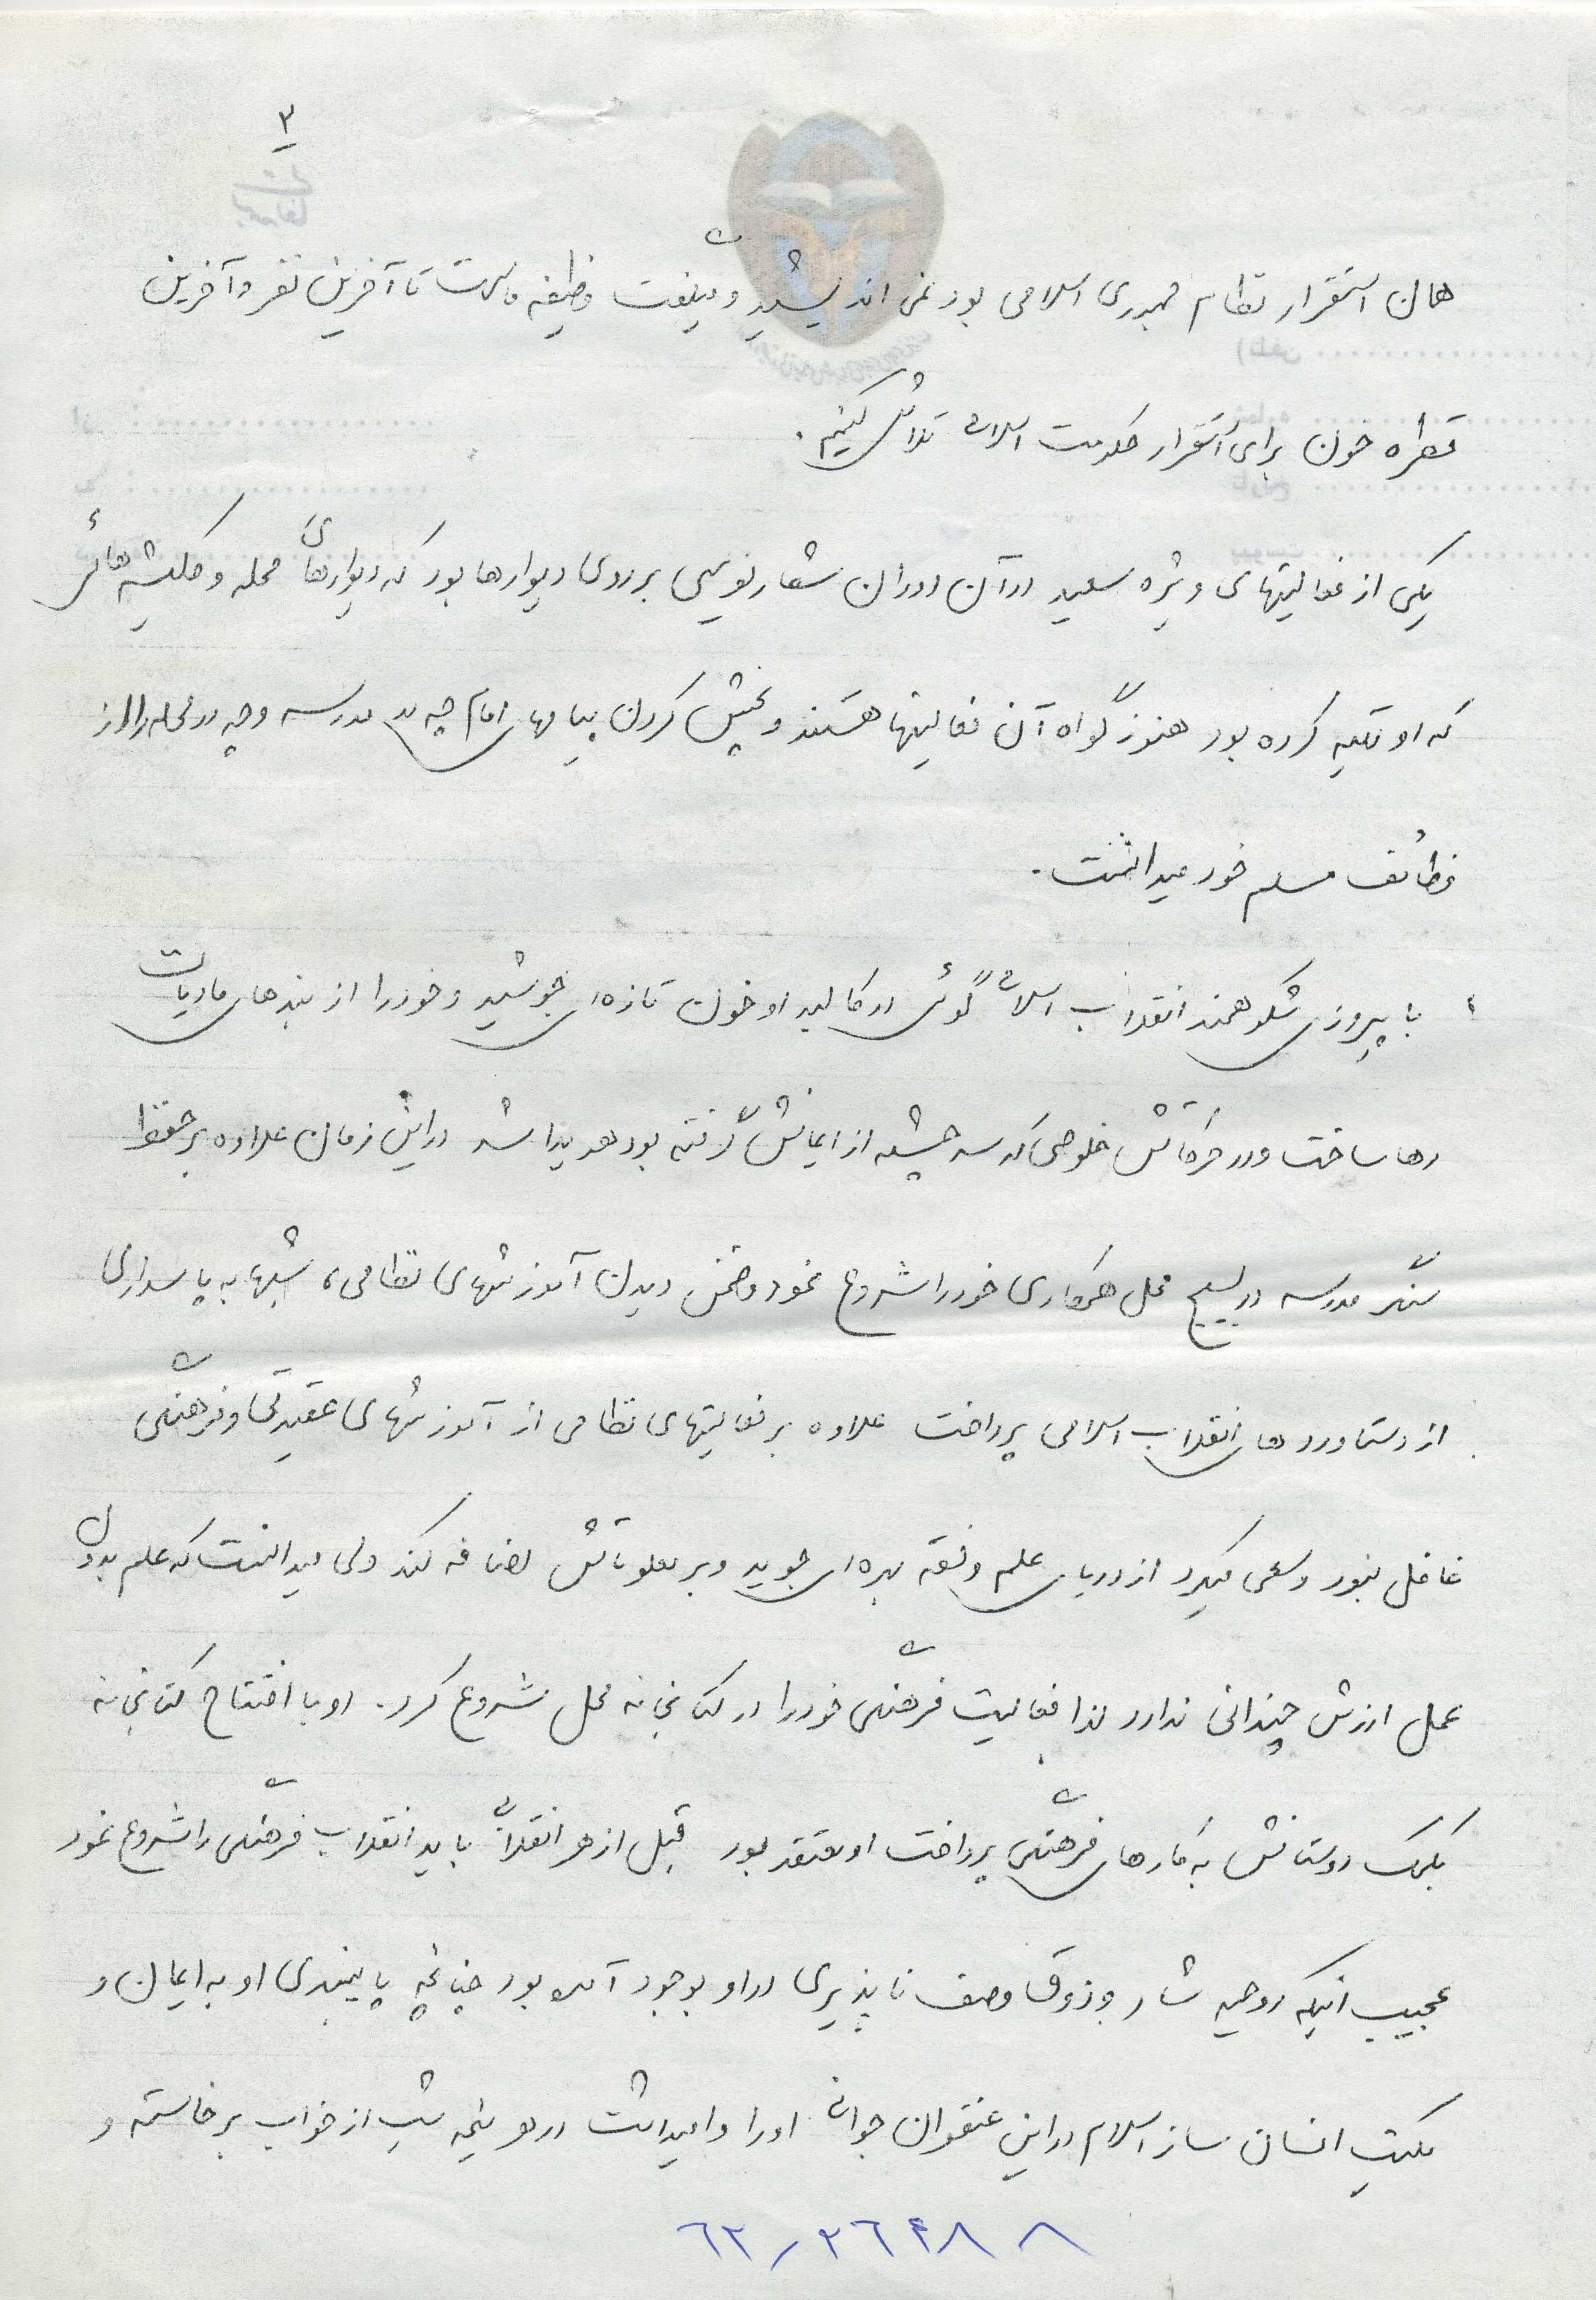 ۳
همان استقرار نظام جمهوری اسلامی بود نمی اندیشید و میگفت وظیفه ماست تا آخرین نفر و آخرین
قطره خون برای استقرار حکومت اسلامی تلاش کنیم.
یکی از فعالیتهای ویژه سعید در آن دوران شعار نویسی بر روی دیوارها بود که دیوارهای محله و کلیشه هائی
که او تهیه کرده بود هنوز گواه آن فعالیتها هستند و پخش کردن پیامهای امام چه در مدرسه و چه در محله را از
وظائف مسلم خود میدانست.
با پیروزی شکوهمند انقلاب اسلامی گوئی در کالبد او خون تازه ای جوشید و خود را از بندهای مادیات
رها ساخت و در حرکاتش خلوصی که سرچشمه از ایمانش گرفته بود هویدا شد در این زمان علاوه بر حفظ
سنگر مدرسه در بسیج محل همکاری خود را شروع نمود و ضمن دیدن آموزشهای نظامی، شبها به پاسداری
از دستاوردهای انقلاب اسلامی پرداخت علاوه بر فعالیتهای نظامی از آموزشهای عقیدتی و فرهنگی
غافل نبود و سعی میکرد از دریای علم و فقه بهره ای جوید و بر معلوماتش اضافه کند ولی میدانست که علم بدون
عمل ارزش چندانی ندارد لذا فعالیت فرهنگی خود را در کتابخانه محل شروع کرد. او با افتتاح کتابخانه
بکمک دوستانش به کارهای فرهنگی پرداخت او معتقد بود قبل از هر انقلابی باید انقلاب فرهنگی را شروع نمود
عجیب اینکه روحیه شاد و ذوق وصف ناپذیری در او بوجود آمده بود چنانچه پایبندی او به ایمان و
مکتب انسان ساز اسلام در این عنفوان جوانی او را وامیداشت در هر نیمه شب از خواب برخاسته و
۶۲/۲۶۴۸۸